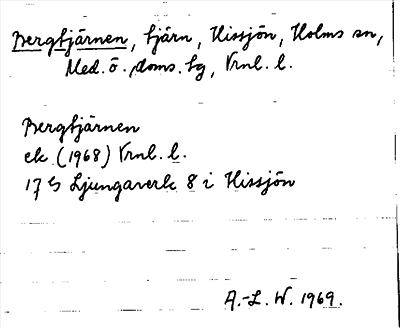 Bergtjärnen, tjärn, Hissjön, Holms sn,
Med. ö. doms. tg, Vrnl. l.
Bergtjärnen
ek (1968) Vrnl. l.
17 G Ljungaverk 8 i Hissjön
A.-L. W. 1969.